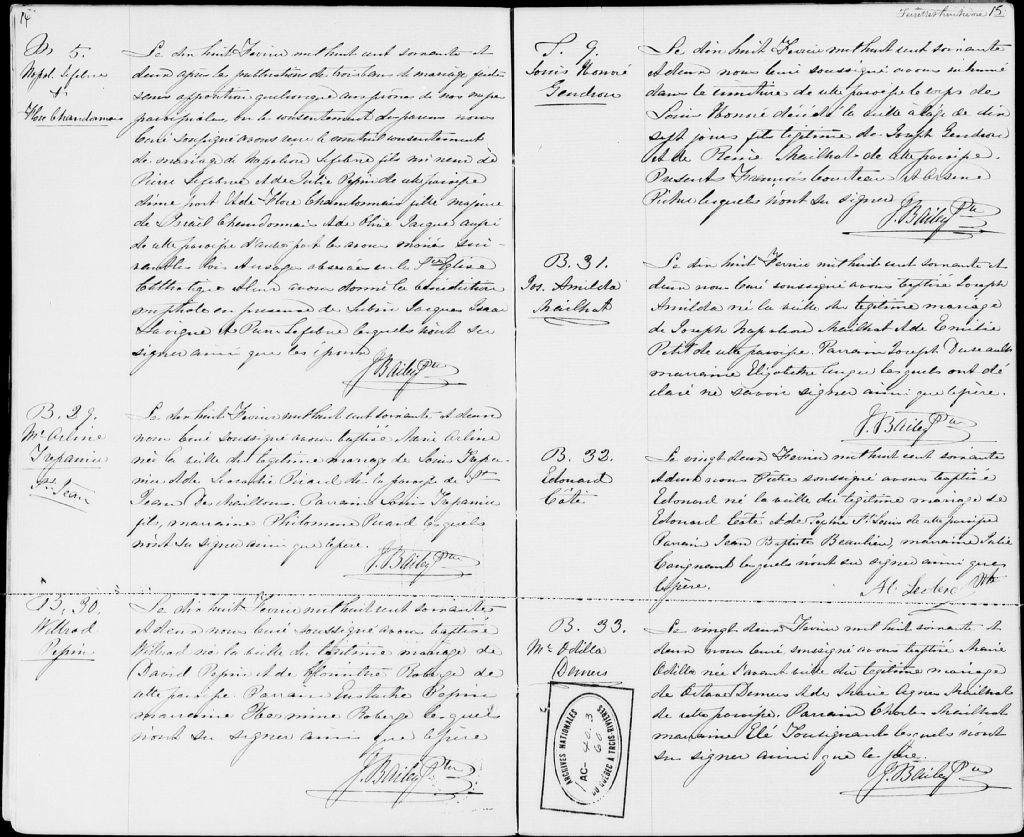 14
B 5.
Npol. Lefebre
&
Flore Chandonnais
Le dix huit Fevrier mil huit cent soixante et
deux après la publications de trois bans de mariage faite
sans opposition quelconque aux prônes de nos messes
paroissiales, vu le consentement des parens nous
Curé soussigné avons reçu le mutuel consentement
de mariage de Napoléon Lefebre fils mineur de
Pierre Lefebvre et de Julie Pepin de cette paroisse
d'une part et de Flore Chandonnais fille majeure
de Israël Chandonnais et de Olive Jacques aussi
de cette paroisse d'autre part les avons mariés sui-
vant les lois et usages observés en la Ste Eglise
Catholique et leur avons donné la bénédiction
nuptiale en presence de Jacques Isaac
Lavigne et Pierre Lefebre lesquels n'ont su
signer ainsi que les époux
J. Bailey Ptre
B. 29.
Me Arline
Trepanier
St Jean
Le dix huit Fevrier mil huit cent soixante et deux
nous Curé soussigné avons baptisé Marie Arline
née la veille du légitime mariage de Louis Trepa-
nier et de Picard de la paroisse de St
Jean Des Chaillons. Parrain Louis Trepanier
fils, marraine Philomene Picard lesquels
n'ont su signer ainsi que le père.
J. Bailey Ptre
B. 30.
Wilbrod
Pepin
Le dix huit Fevrier mil huit cent soixante
et deux nous Curé soussigné avons baptisé
Wilbrod né la veille du légitime mariage de
David Pepin et de Roberge de
cette paroisse Parrain Eustache Pepin
marraine Hermine Roberge lesquels
n'ont su signer ainsi que le père
J. Bailey Ptre
15
S. 9.
Louis Honoré
Gendron
Le dix huit Fevrier mil huit cent soixante
et deux nous Curé soussigné avons inhumé
dans le cimetiere de cette paroisse le corps de
Louis Honoré décédé la veille à l'âge de dix
sept jours fils légitime de Joseph Gendron
et de Rosie Mailhot de cette paroisse.
Presents François Couteau et Arsene
Pichet lesquels n'ont su signer
J. Bailey Ptre
B. 31.
Jos. Amilda
Mailhot
Le dix huit Fevrier mil huit cent soixante et
deux nous Curé soussigné avons baptisé Joseph
Amilda né la veille du légitime mariage
de Joseph Napoleon Mailhot et de Emilie
Petit de cette paroisse. Parrain Joseph
marraine Elizabeth lesquels ont dé
claré ne savoir signer ainsi que le père.
J. Bailey Ptre
B. 32.
Edouard
Côté
Le vingt deux Fevrier mil huit cent soixante
et deux nous Prêtre soussigné avons baptisé
Edouard né la veille du légitime mariage de
Edouard Côté et de St Louis de cette paroisse
Parrain Jean Baptiste Beaulieu, marraine Julie
lesquels n'ont su signer ainsi que
le père.
Leclerc Ptre
B. 33.
Me Odilla
Demers
Le vingt deux Fevrier mil huit soixante et
deux nous Curé soussigné avons baptisé Marie
Odilla née l'avant veille du légitime mariage
de Octave Demers et de Marie Agnes Mailhot
de cette paroisse. Parrain Charles Mailhot
marraine Elé Tousignant lesquels n'ont
su signer ainsi que le père.
J. Bailey Ptre
ARCHIVES NATIONALES
AC- 40.3
60
DU QUÉBEC À TROIS-RIVIÈRES